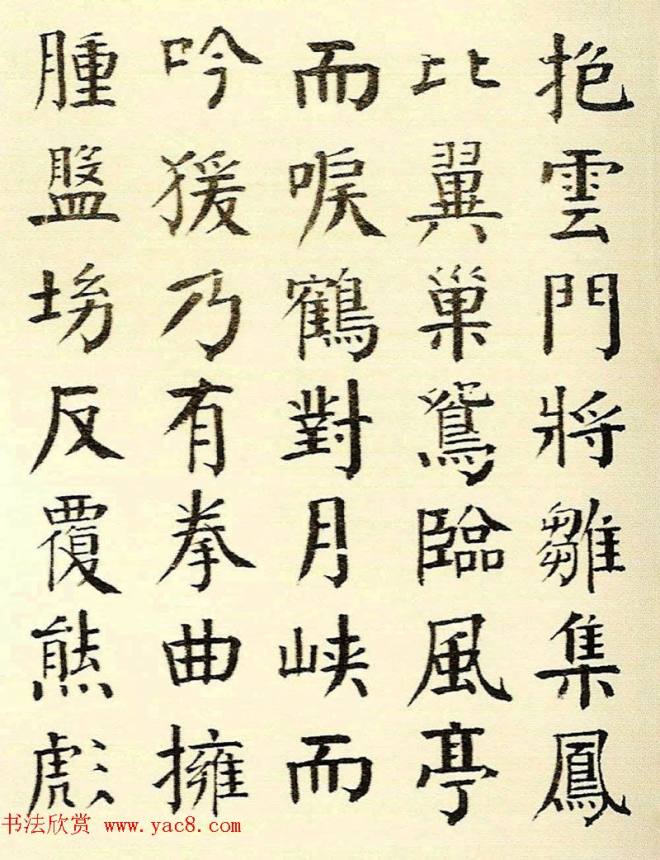 抱雲門將雛集鳳
比翼巢鴛臨風亭
而唳鶴對月峡而
吟猨乃有拳曲擁
腫盤坳反覆熊彪
书法欣赏 www.yac8.com